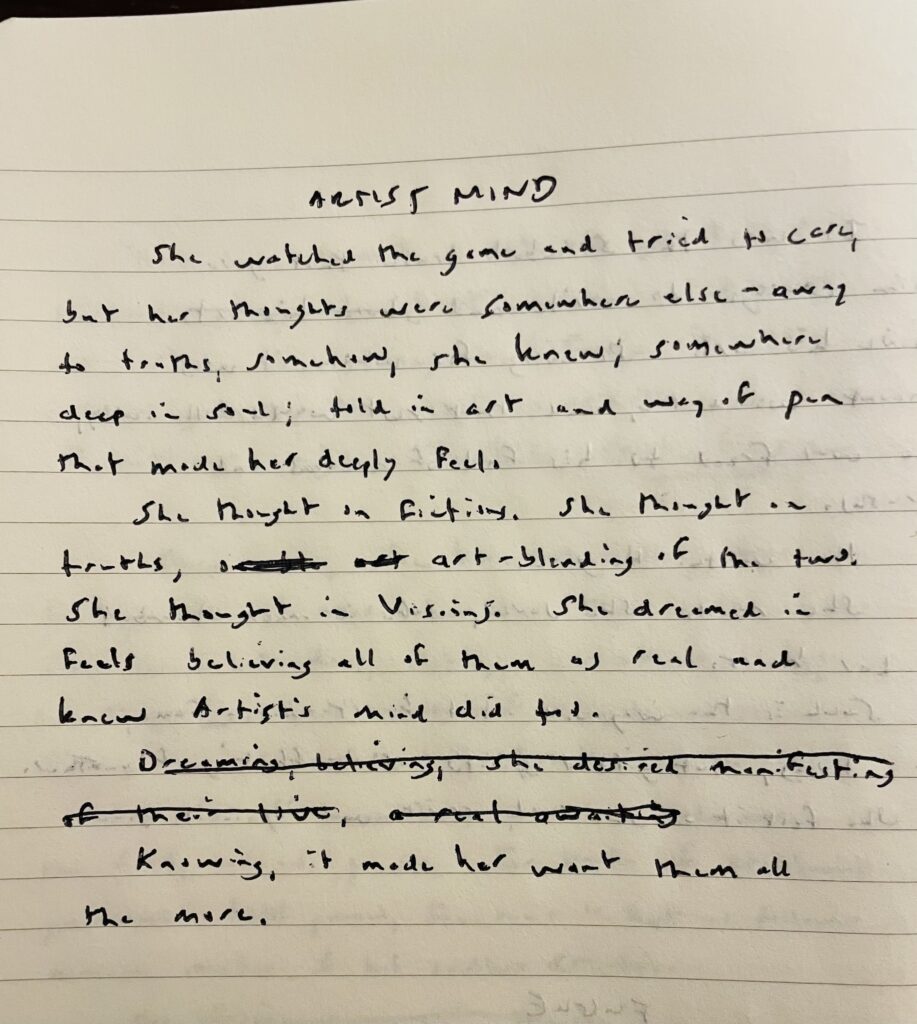 ARTIST MIND
She watched the game and tried to care,
but her thoughts were somewhere else – away
to truths, somehow, she knew; somewhere
deep in soul; told in art and way of pen
that made her deeply feel.
She thought on fictions. She thought on
truths, art – blending of the two.
She thought in visions. She dreamed in
feels believing all of them as real and
knew Artist's mind did too.
Dreaming, believing, she desired manifesting
of their live, a real awaiting
Knowing, it made her want them all
the more.